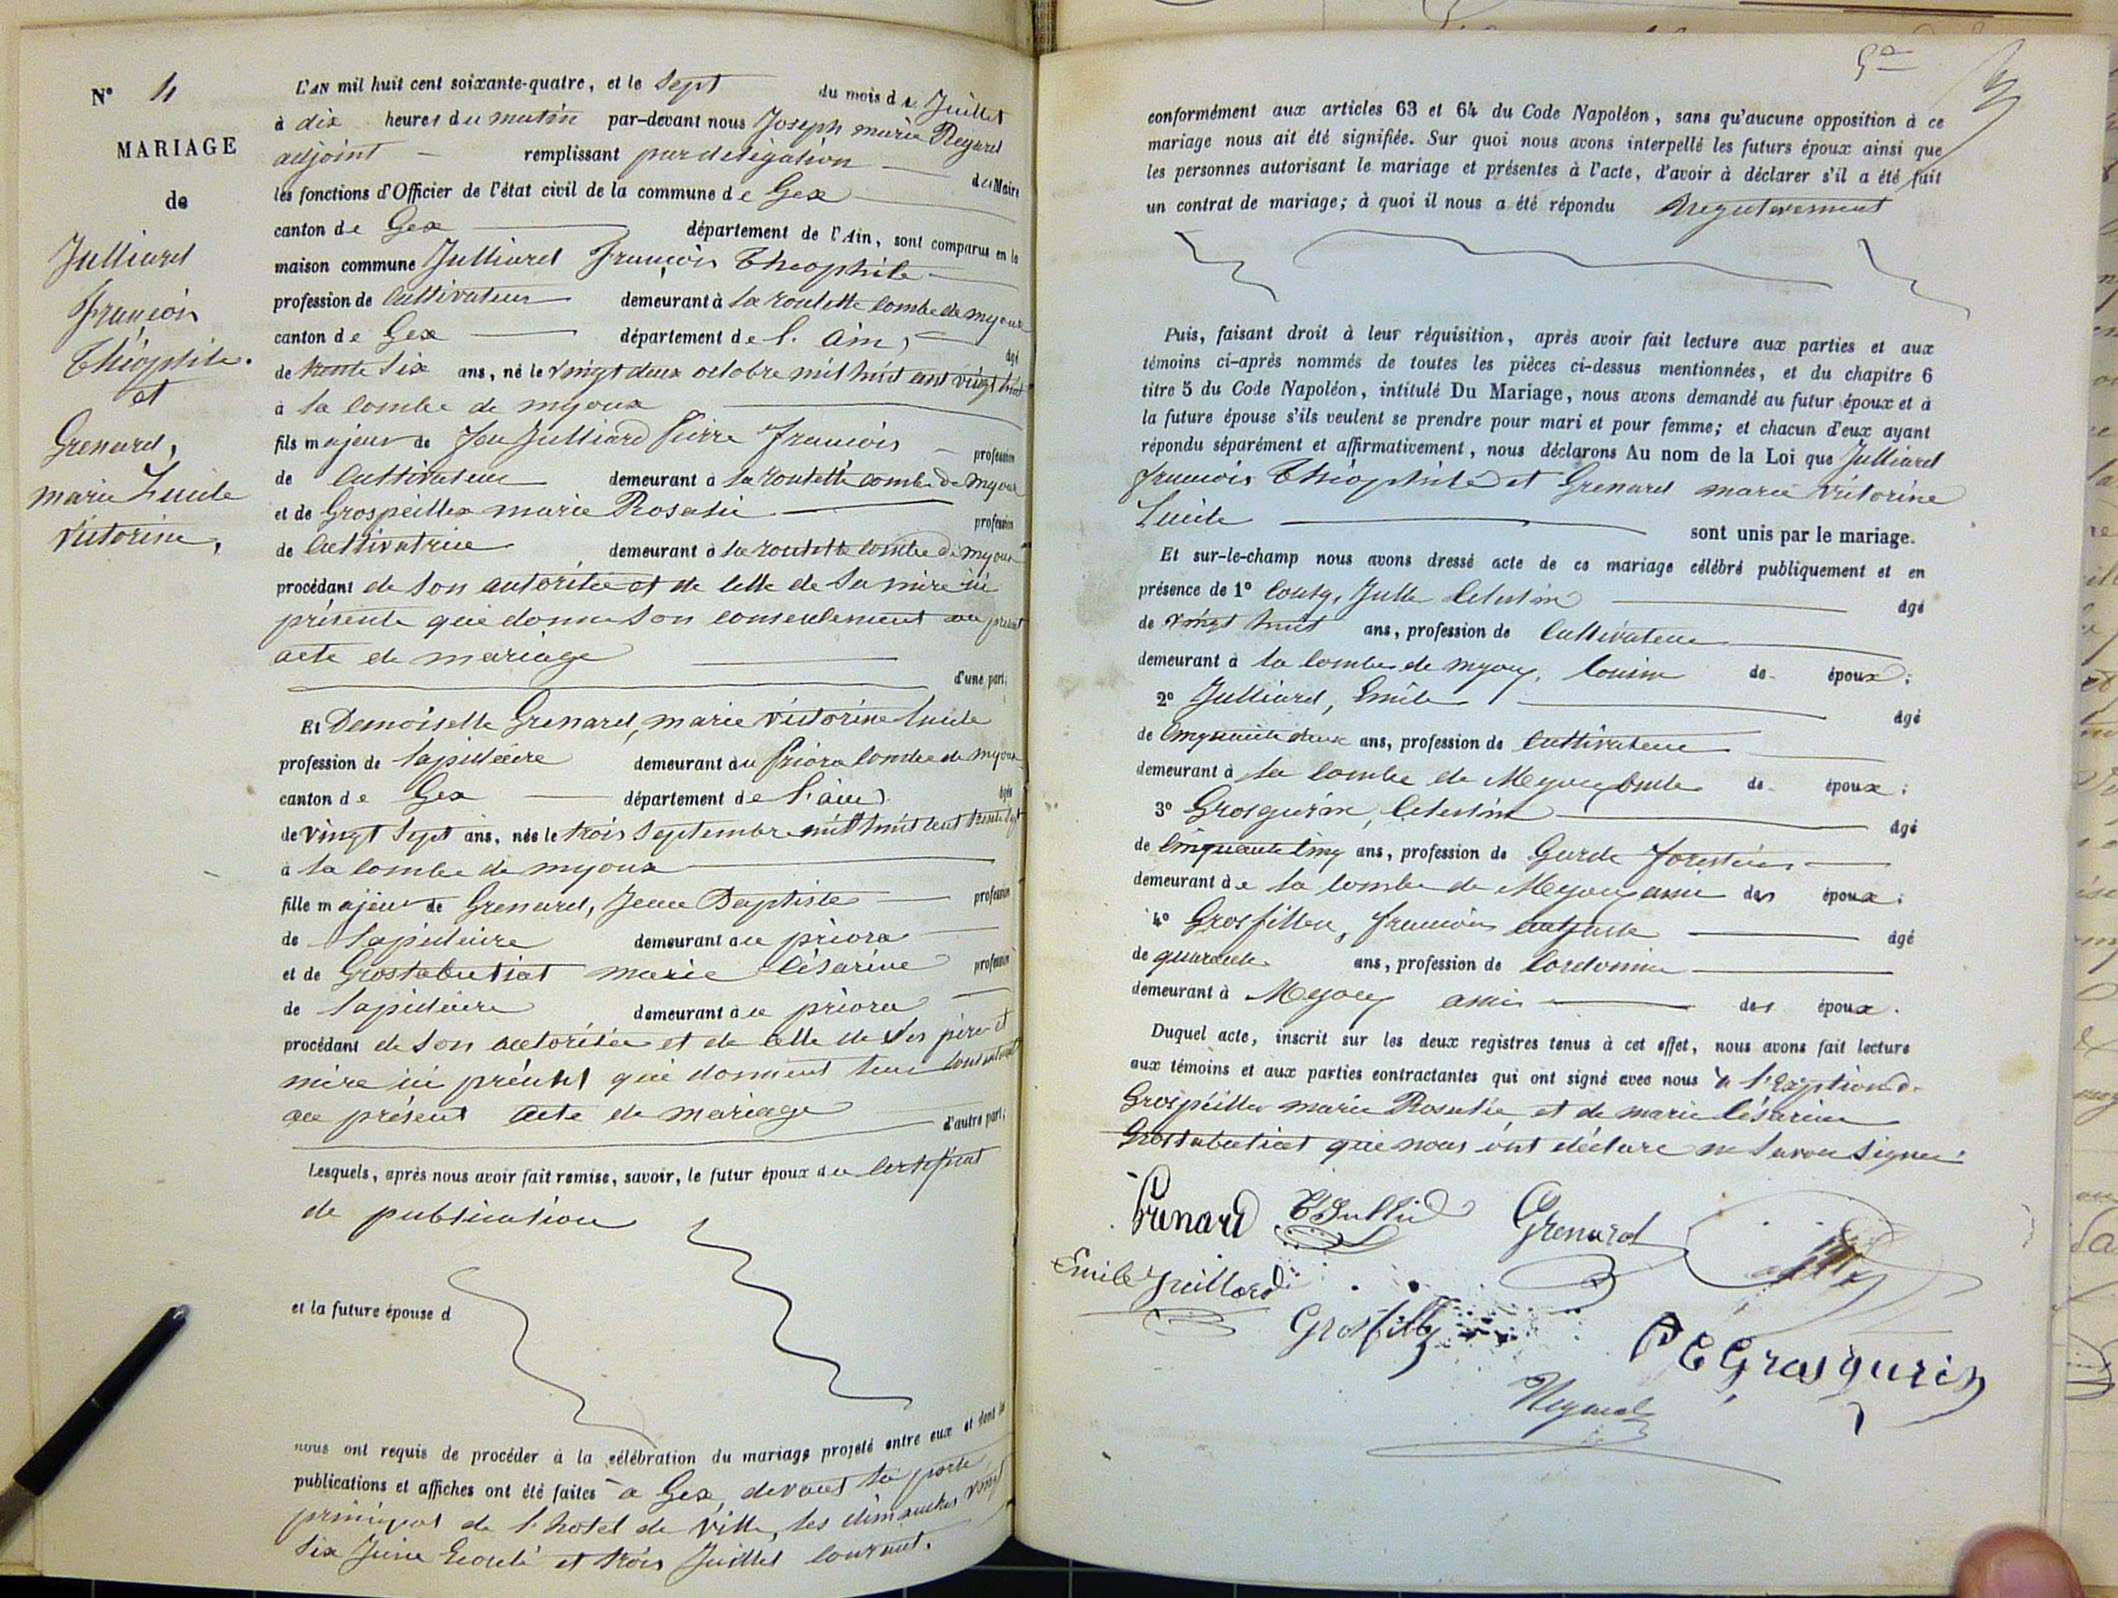 N° 4
MARIAGE
de
Julliard
François
Théophile.
et
Grenard,
marie Lucile
Victorine,
L'AN mil huit cent soixante-quatre, et le sept du mois de Juillet
à dix heures du matin par-devant nous Joseph marie Regard
adjoint remplissant par delégation du Maire
les fonctions d'Officier de l'état civil de la commune de Gex
canton de Gex département de l'Ain, sont comparus en la
maison commune Julliard François Théophile
profession de Cultivateur demeurant à la roulette combe de myoux
canton de Gex département de l'ain, âgé
de trente six ans, né le vingt deux octobre mil huit cent vingt huit
à la combe de myoux
fils majeur de feu Julliard Pierre François profession
de Cultivateur demeurant à la roulette combe de myoux
et de Grospeillex marie Rosalie profession
de Cultivatrice demeurant à la roulette combe de myoux
procédant de son autoritée et de celle de sa mère ici
présente qui donne son consentement au présent
acte de mariage
d'une part;
Et Demoiselle Grenard, marie victorine lucile
profession de lapidaire demeurant au Priora combe de myoux
canton de Gex département de l'ain âgée
de vingt sept ans, née le trois septembre mil huit cent trente sept
à la combe de myoux
fille majeur de Grenard, Jean Baptiste profession
de lapidaire demeurant au priora
et de Grostabutiat marie césarine profession
de lapidaire demeurant au priora
procédant de son autorisée et de celle de ses père et
mère ici présent qui donnent leur consentement
au présent acte de mariage d'autre part;
Lesquels, après nous avoir fait remise, savoir, le futur époux du certificat
de publication
et la future épouse d
nous ont requis de procéder à la célébration du mariage projeté entre eux et dont les
publications et affiches ont été faites à Gex, devant la porte
principal de l'hotel de ville, les dimanches vingt
six Juin écoulé et trois Juillet courant.
5
conformément aux articles 63 et 64 du Code Napoléon, sans qu'aucune opposition à ce
mariage nous ait été signifiée. Sur quoi nous avons interpellé les futurs époux ainsi que
les personnes autorisant le mariage et présentes à l'acte, d'avoir à déclarer s'il a été fait
un contrat de mariage; à quoi il nous a été répondu négativement
Puis, faisant droit à leur réquisition, après avoir fait lecture aux parties et aux
témoins ci-après nommés de toutes les pièces ci-dessus mentionnées, et du chapitre 6
titre 5 du Code Napoléon, intitulé Du Mariage, nous avons demandé au futur époux et à
la future épouse s'ils veulent se prendre pour mari et pour femme; et chacun d'eux ayant
répondu séparément et affirmativement, nous déclarons Au nom de la Loi que Julliard
François Théophile et Grenard marie victorine
Lucile sont unis par le mariage.
Et sur-le-champ nous avons dressé acte de ce mariage célébré publiquement et en
présence de 1° Jules Celestin âgé
de vingt huit ans, profession de Cultivateur
demeurant à la combe de myoux, cousin de époux;
2° Julliard, Emile âgé
de Cinquante deux ans, profession de Cultivateur
demeurant à la combe de Meyoux oncle de époux;
3° Grosgurin, Celestin âgé
de Cinquante cinq ans, profession de Garde forestier
demeurant à la combe de Meyoux ami des époux;
4° Grosfillex, François âgé
de quarante ans, profession de Cordonnier
demeurant à Meyoux ami des époux.
Duquel acte, inscrit sur les deux registres tenus à cet effet, nous avons fait lecture
aux témoins et aux parties contractantes qui ont signé avec nous à l'exeption de
Grospeillex marie Rosalie, et de marie césarine
Grostabutiat qui nous ont déclaré ne savoir signer.
Grenard Grenard
Emile Juillard
Grosfillex
C Grosgurin
Regard